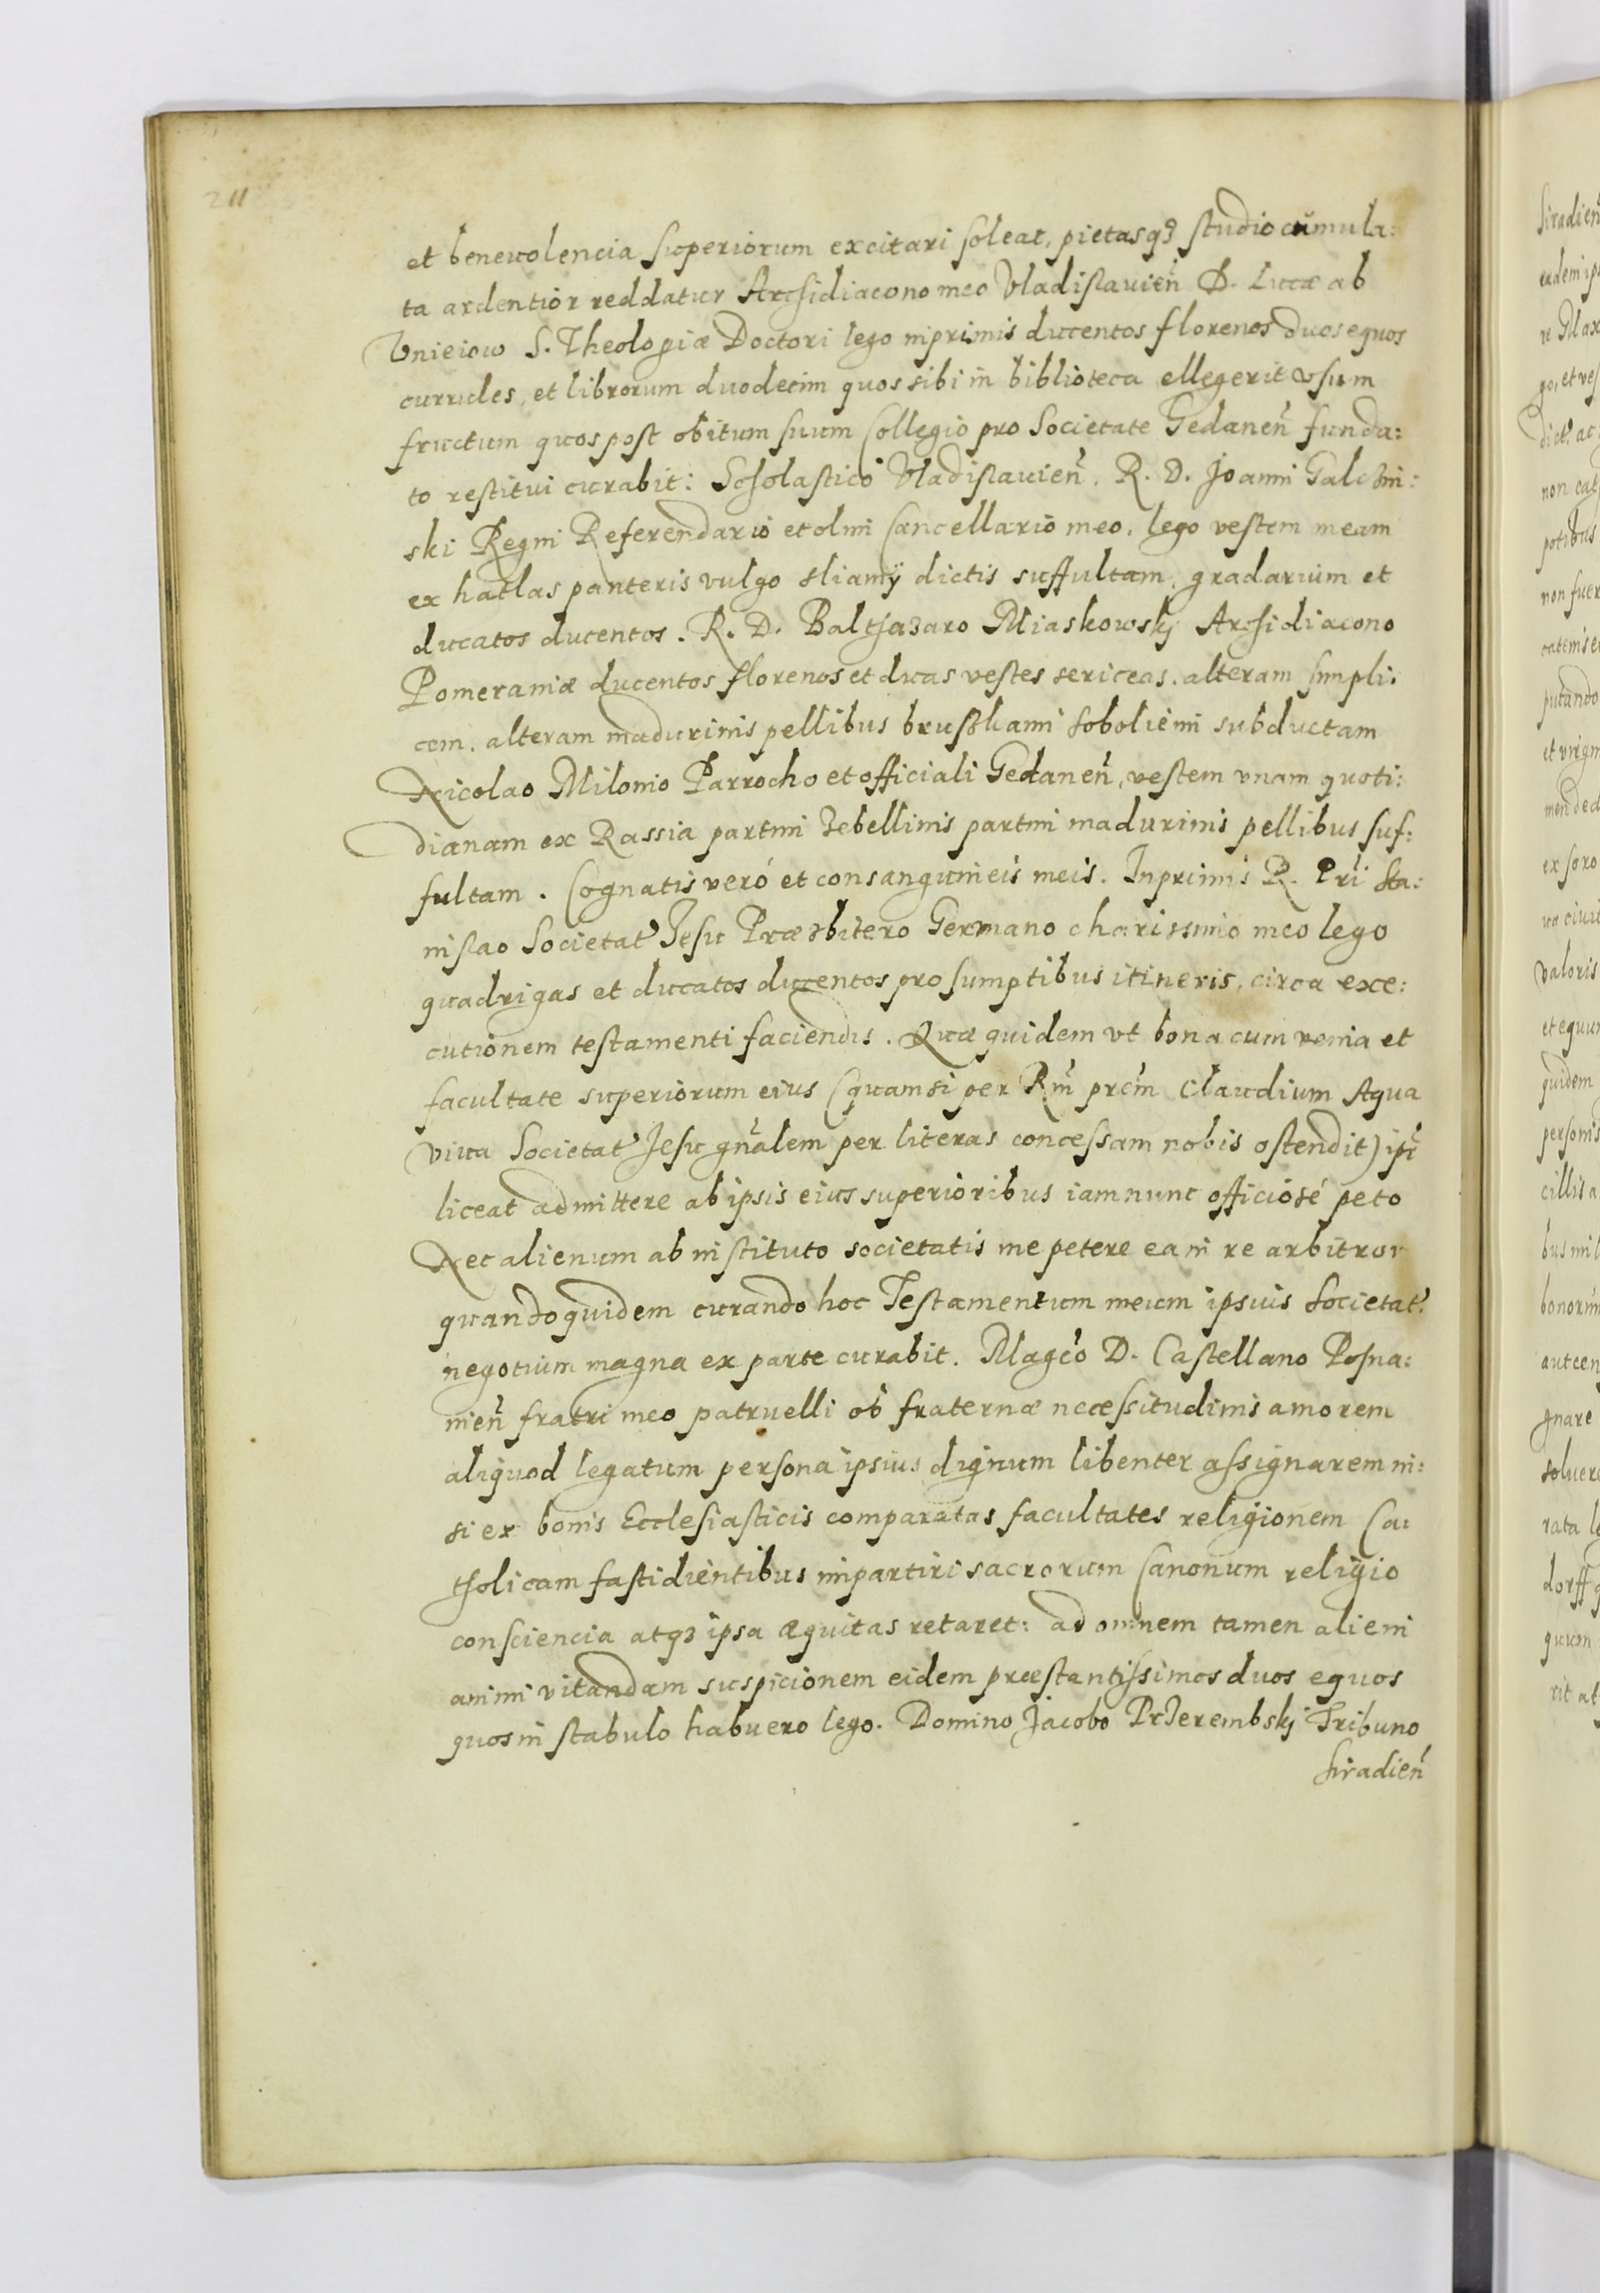 211
et benevolencia superiorum excitari soleat, pietasq3 studio cumula:
ta ardentior reddatur Archidiacono meo Vladislauien̄ D. Lucæ ab
Vnieiow S. Theologiæ Doctori lego inprimis ducentos florenos duos equos
currules, et librorum duodecim quos sibi in biblioteca ellegerit vsum
fructum quos post obitum suum Collegio pro Societate Gedanen̄ funda:
to restitui curabit: Scholastico Vladislauien̄. R. D. Joanni Galczin:
ski Regni Referendario et olim Cancellario meo, lego vestem meam
ex hatlas panteris vulgo sliamÿ dictis suffultam, gradarium et
ducatos ducentos. R. D. Balthazaro Miaskowskj Archidiacono
Pomeraniæ ducentos florenos et duas vestes sericeas, alteram simpli:
cem, alteram madurinis pellibus bruszkami soboliemi subductam
Nicolao Milonio Parrocho et officiali Gedanen̄, vestem vnam quoti:
dianam ex Rassia partim Zebellinis partim madurinis pellibus suf:
fultam. Cognatis veró et consanguineis meis. Inprimis R. Pri Sta:
nislao Societat Jesu Præsbitero Germano charissimo meo lego
quadrigas et ducatos ducentos pro sumptibus itineris, circa exe:
cutionem testamenti faciendis. Quæ quidem vt bona cum venia et
facultate superiorum eius (quam si per Rm̄ prēm Claudium Aqua
viua Societat Jesu gn̄alem per literas concessam nobis ostendit) ipī
liceat admittere ab ipsis eius superioribus iam nunc officiosé peto
Nec alienum ab instituto societatis me petere ea in re arbitror
quandoquidem curando hoc Testamentum meum ipsius Societat
negotium magna ex parte curabit. Magcō D. Castellano Posna:
nien̄ fratri meo patruelli ob fraternæ necessitudinis amorem
aliquod legatum persona ipsius dignum libenter assignarem ni:
si ex bonis Ecclesiasticis comparatas facultates religionem Ca:
tholicam fastidientibus impartiri sacrorum Canonum religio
consciencia atq3 ipsa æquitas retaret: ad omnem tamen alieni
animi vitandam suspicionem eidem præstantissimos duos equos
quos in stabulo habuero lego. Domino Jacobo PrZerembskj Tribuno
Siradien̄